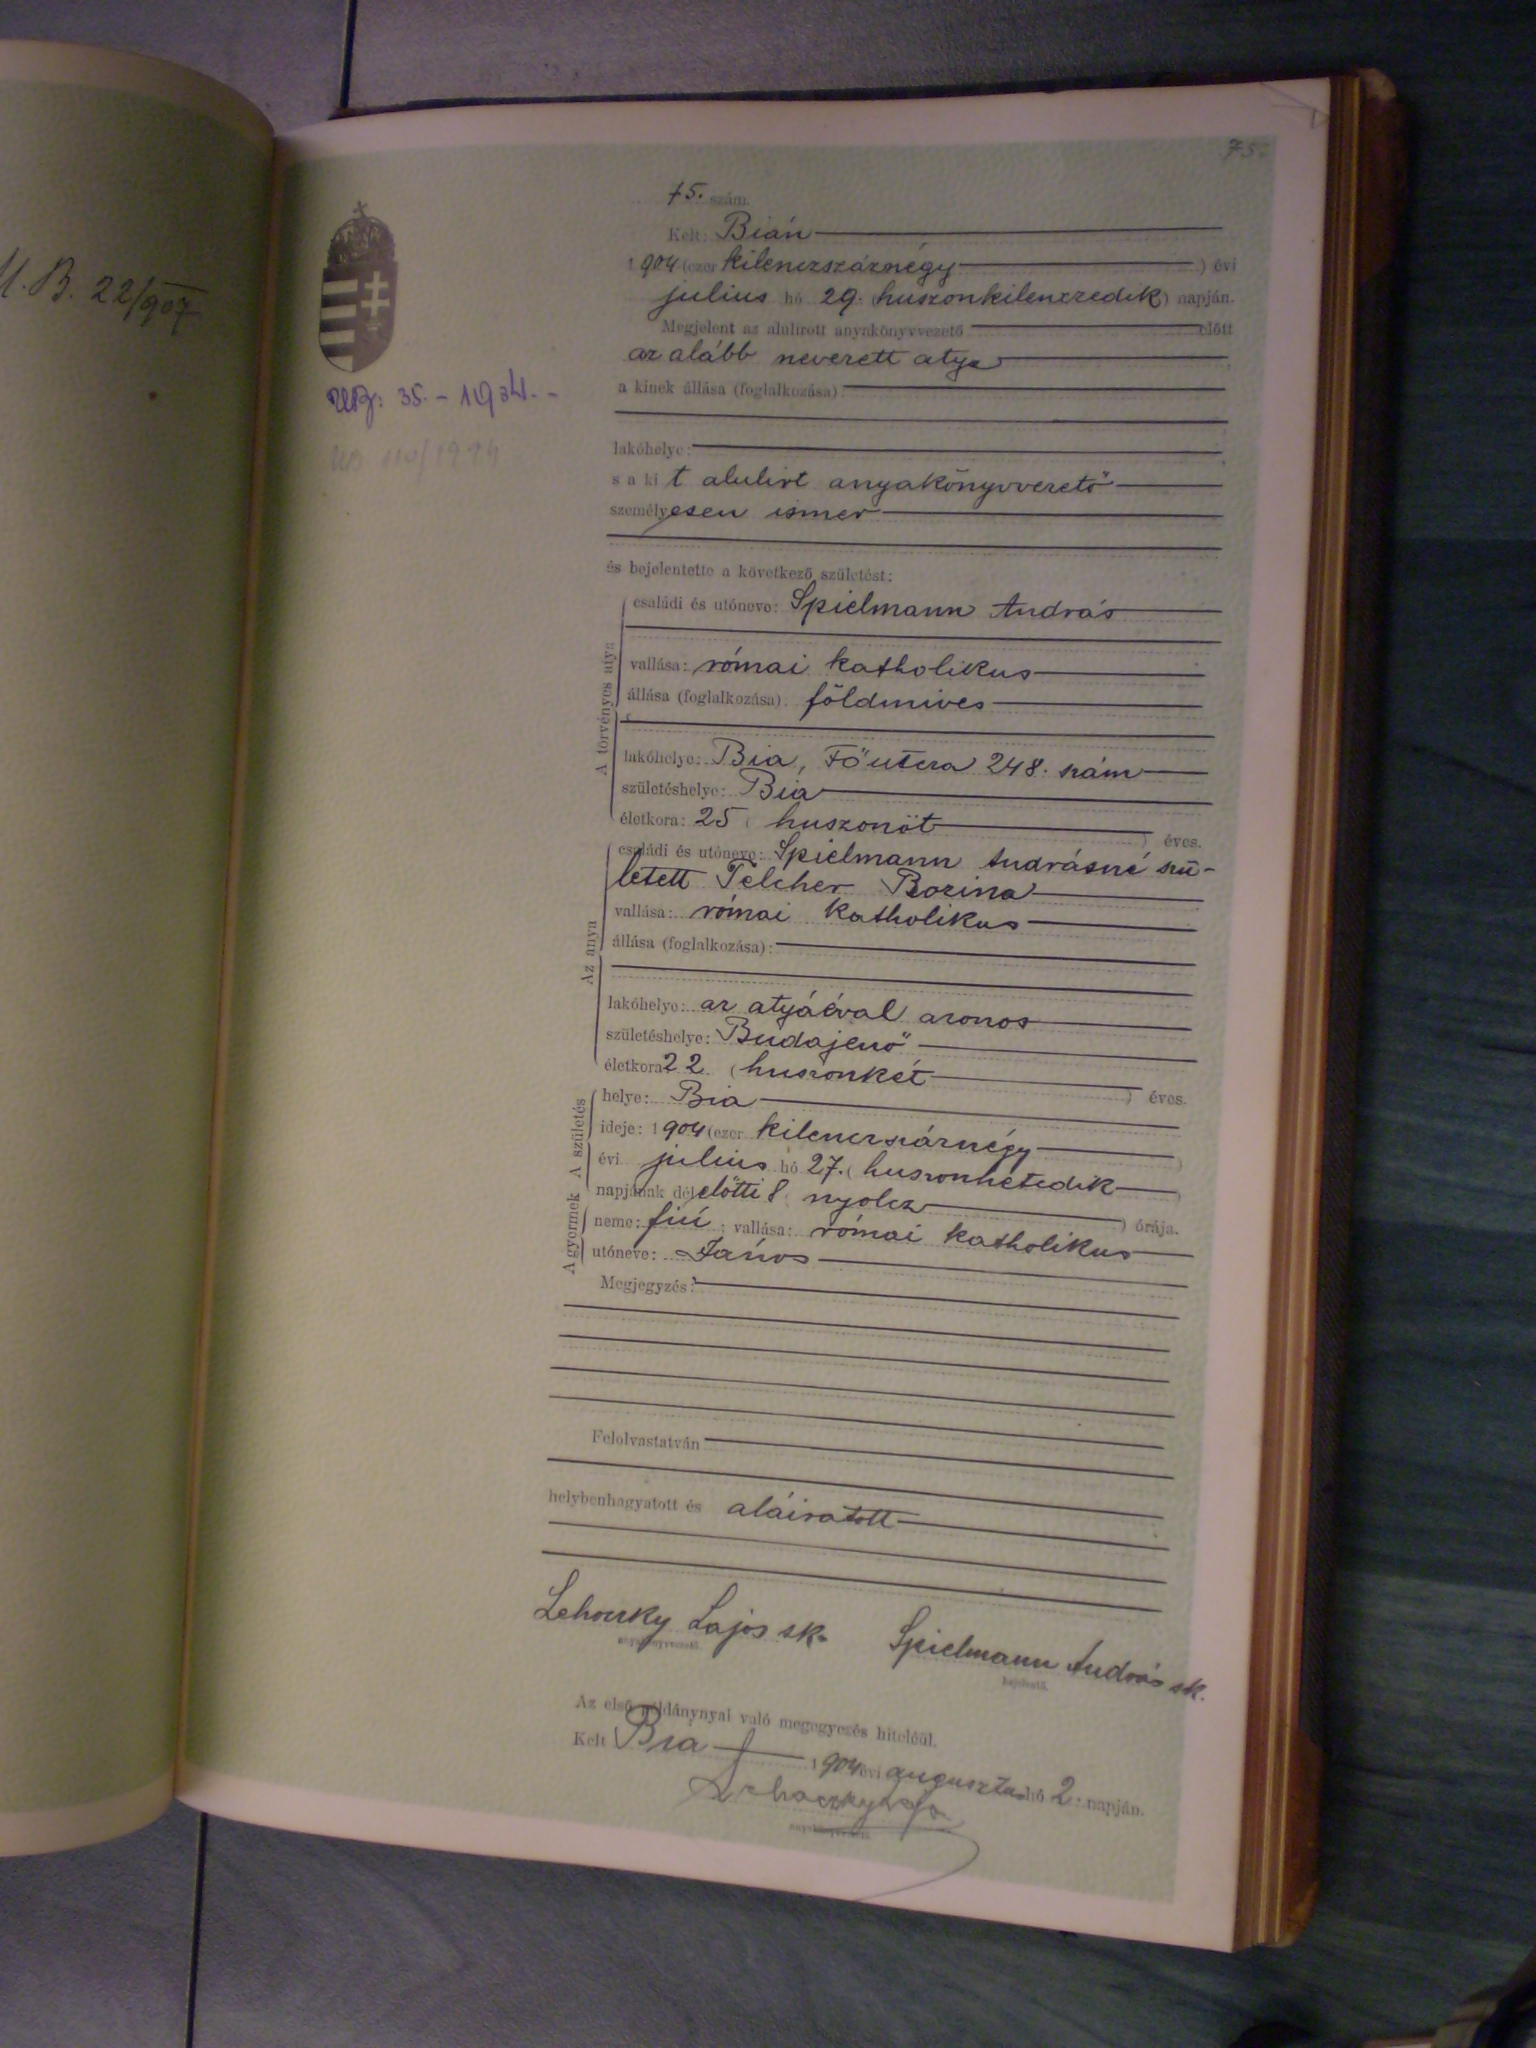 M. B. 22/907
75.
75. szám.
Kelt: Bián
1904 (ezer kilenczszáznégy) évi
julius hó 29. (huszonkilenczedik) napján.
Megjelent az alulirott anyakönyvvezető előtt
az alább nevezett atya
a kinek állása (foglalkozása):
UB: 35.-1934.-
lakóhelye:
s a kit alulirt anyakönyvvezető
személyesen ismer
és bejelentette a következő születést:
A törvényes atya
családi és utóneve: Spielmann András
vallása: római katholikus
állása (foglalkozása): földmives
lakóhelye: Bia, Főutcza 248. szám
születéshelye: Bia
életkora: 25 (huszonöt) éves.
Az anya
családi és utóneve: Spielmann Andrásné szü-
letett Telcher Rozina
vallása: római katholikus
állása (foglalkozása):
lakóhelye: az atyáéval azonos
születéshelye: Budajenő
életkora 22. (huszonkét) éves.
A születés
helye: Bia
ideje: 1904 (ezer kilenczszáznégy)
évi julius hó 27. (huszonhetedik)
napjának délelőtti 8 (nyolcz) órája.
A gyermek
neme: fiú; vallása: római katholikus
utóneve: János
Megjegyzés:
Felolvastatván
helybenhagyatott és aláiratott
Lehoczky Lajos sk. Spielmann András sk.
anyakönyvvezető. bejelentő.
Az első példánynyal való megegyezés hiteléül.
Kelt Bia 1904 évi augusztus hó 2. napján.
Lehoczky Lajos
anyakönyvvezető.